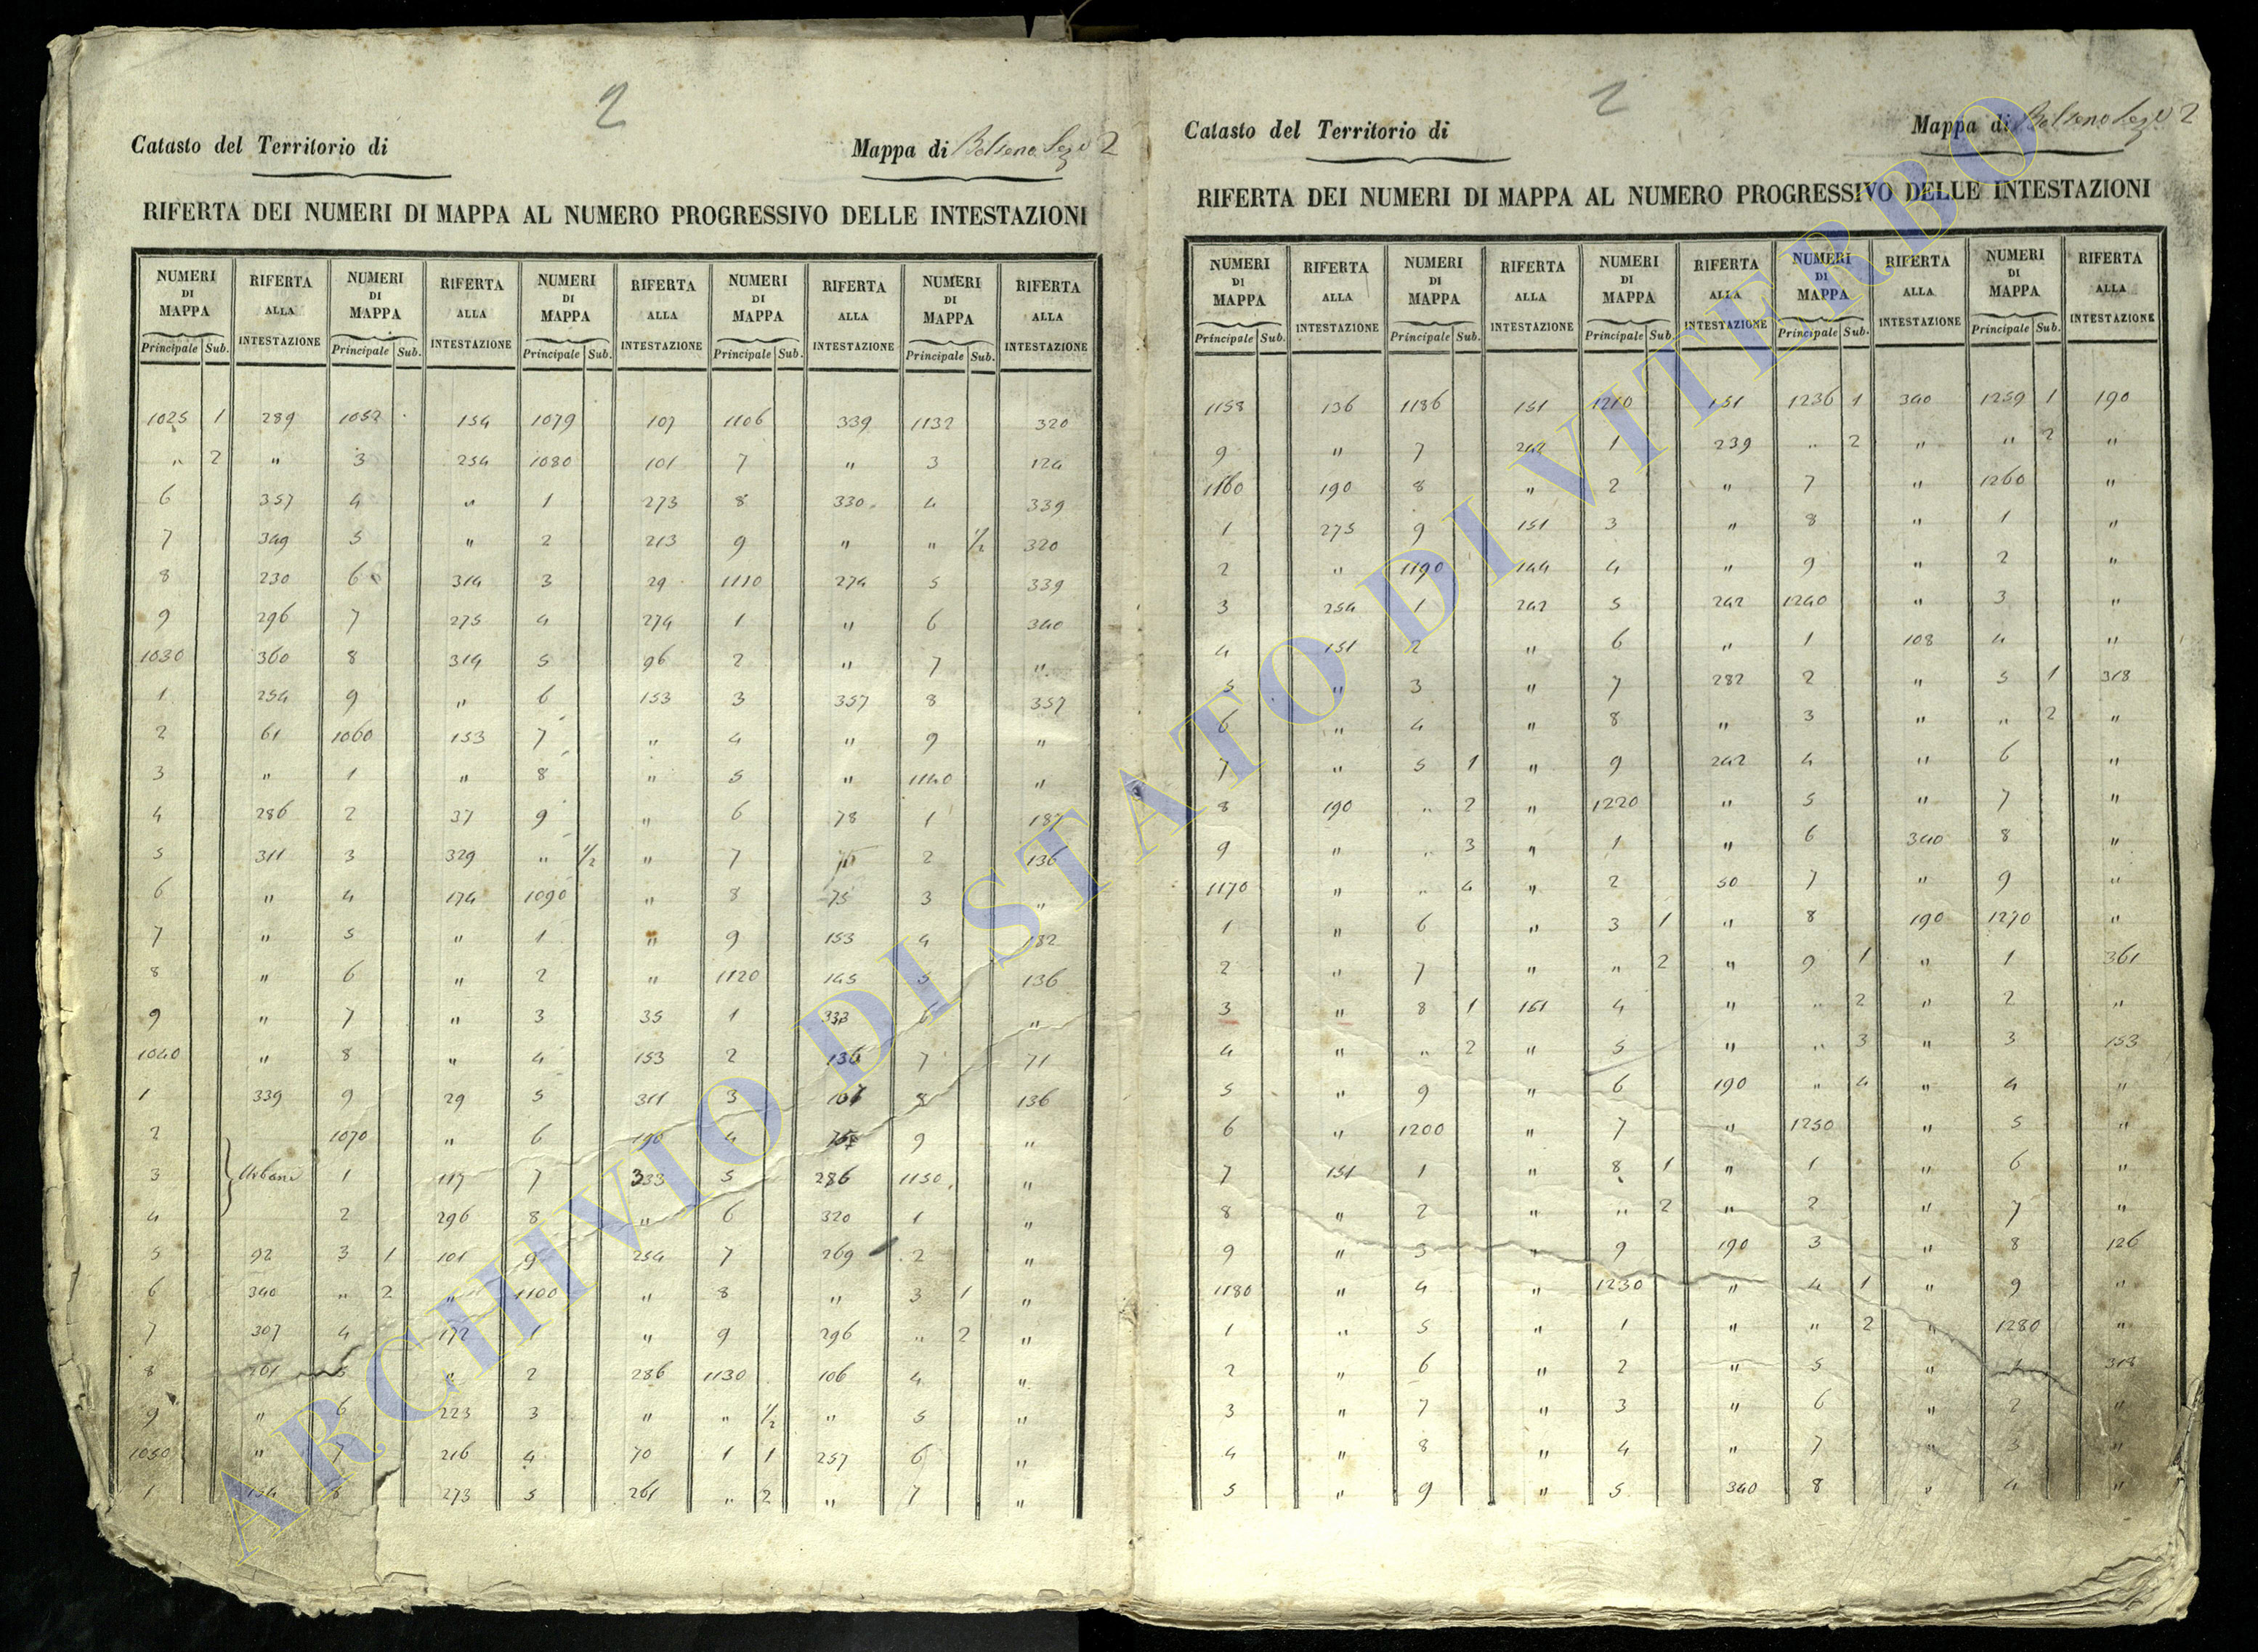 2
Catasto del Territorio di
Mappa di Bolsena Sez. 2
RIFERTA DEI NUMERI DI MAPPA AL NUMERO PROGRESSIVO DELLE INTESTAZIONI
NUMERI DI MAPPA RIFERTA ALLA INTESTAZIONE NUMERI DI MAPPA RIFERTA ALLA INTESTAZIONE NUMERI DI MAPPA RIFERTA ALLA INTESTAZIONE NUMERI DI MAPPA RIFERTA ALLA INTESTAZIONE NUMERI DI MAPPA RIFERTA ALLA INTESTAZIONE
Principale Sub. Principale Sub. Principale Sub. Principale Sub. Principale Sub.
1025 1 289 1052 154 1079 107 1106 339 1132 320
" 2 " 3 254 1080 101 7 " 3 124
6 357 4 " 1 273 8 330 4 339
7 349 5 " 2 213 9 " " 1/2 320
8 230 6 314 3 29 1110 274 5 339
9 296 7 275 4 274 1 " 6 340
1030 360 8 314 5 96 2 " 7 "
1 254 9 " 6 153 3 357 8 357
2 61 1060 153 7 " 4 " 9 "
3 " 1 " 8 " 5 " 1140 "
4 286 2 37 9 " 6 78 1 187
5 311 3 329 " 1/2 " 7 2 136
6 " 4 174 1090 " 8 75 3 "
7 " 5 " 1 " 9 153 4 182
8 " 6 " 2 " 1120 145 5 136
9 " 7 " 3 35 1 333 6 "
1040 " 8 " 4 153 2 136 7 71
1 339 9 29 5 311 3 8 136
2 1070 " 6 190 4 9 "
3 Urbani 1 117 7 333 5 286 1150 "
4 2 296 8 " 6 320 1 "
5 92 3 1 101 9 254 7 269 2 "
6 340 " 2 " 1100 " 8 " 3 1 "
7 307 4 172 1 " 9 296 " 2 "
8 5 " 2 286 1130 106 4 "
9 " 6 223 3 " " 1/2 " 5 "
1050 " 7 216 4 70 1 1 257 6 "
1 154 8 273 5 261 " 2 " 7 "
2
Catasto del Territorio di
Mappa di Bolsena Sez. 2
RIFERTA DEI NUMERI DI MAPPA AL NUMERO PROGRESSIVO DELLE INTESTAZIONI
NUMERI DI MAPPA RIFERTA ALLA INTESTAZIONE NUMERI DI MAPPA RIFERTA ALLA INTESTAZIONE NUMERI DI MAPPA RIFERTA ALLA INTESTAZIONE NUMERI DI MAPPA RIFERTA ALLA INTESTAZIONE NUMERI DI MAPPA RIFERTA ALLA INTESTAZIONE
Principale Sub. Principale Sub. Principale Sub. Principale Sub. Principale Sub.
1158 136 1186 151 1210 151 1236 1 340 1259 1 190
9 " 7 242 1 239 " 2 " " 2 "
1160 190 8 " 2 " 7 " 1260 "
1 275 9 151 3 " 8 " 1 "
2 " 1190 144 4 " 9 " 2 "
3 254 1 242 5 242 1240 " 3 "
4 151 2 " 6 " 1 108 4 "
5 " 3 " 7 282 2 " 5 1 318
6 " 4 " 8 " 3 " " 2 "
7 " 5 1 " 9 242 4 " 6 "
8 190 " 2 " 1220 " 5 " 7 "
9 " " 3 " 1 " 6 340 8 "
1170 " " 4 " 2 50 7 " 9 "
1 " 6 " 3 1 " 8 190 1270 "
2 " 7 " " 2 " 9 1 " 1 361
3 " 8 1 161 4 " " 2 " 2 "
4 " " 2 " 5 " " 3 " 3 153
5 " 9 " 6 190 " 4 " 4 "
6 " 1200 " 7 " 1250 " 5 "
7 151 1 " 8 1 " 1 " 6 "
8 " 2 " " 2 " 2 " 7 "
9 " 3 " 9 190 3 " 8 126
1180 " 4 " 1230 " 4 1 " 9 "
1 " 5 " 1 " " 2 " 1280 "
2 " 6 " 2 " 5 " 1 318
3 " 7 " 3 " 6 " 2 "
4 " 8 " 4 " 7 " 3 "
5 " 9 " 5 340 8 " 4 "
ARCHIVIO DI STATO DI VITERBO